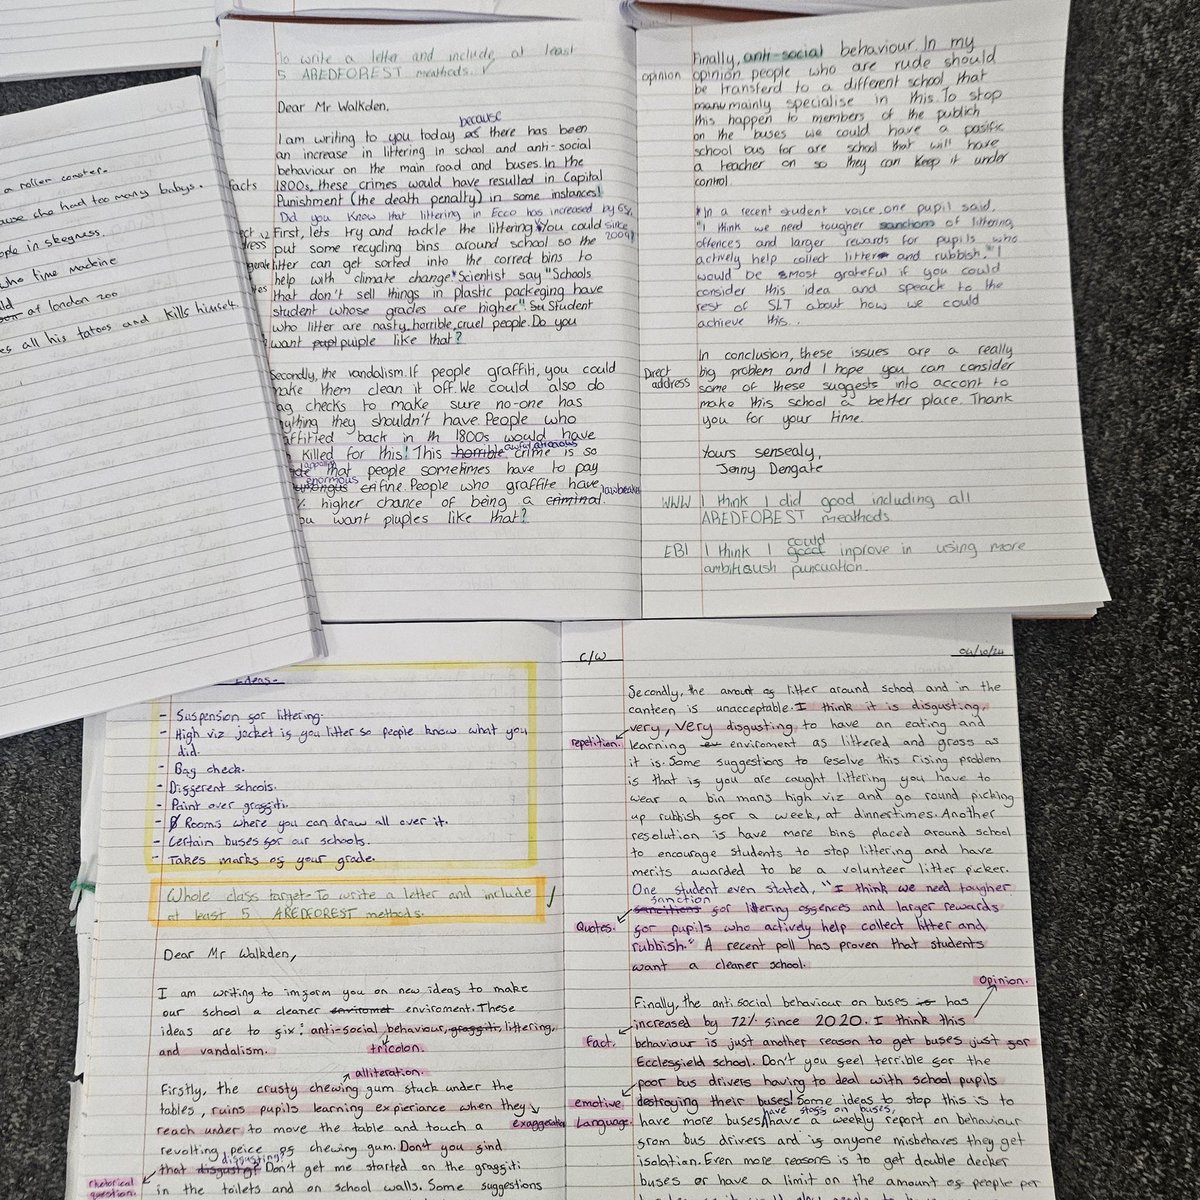 a roller coaster.
she had too many babys.
in skegness
time machine
at london zoo
all his tatoos and kills himself
To write a letter and include at least
5 AREDFOREST meathods. ✓
Dear Mr Walkden,
because
I am writing to you today as there has been
an increase in littering in school and anti-social
behaviour on the main road and buses. In the
facts 1800s, these crimes would have resulted in Capital
Punishment (the death penalty) in some instances!
Did you know that littering in Ecco has increased by 65%
since 2009?
First, lets try and tackle the littering. You could
put some recycling bins around school so the
litter can get sorted into the correct bins to
help with climate change. Scientist say "Schools
that don't sell things in plastic packeging have
student whose grades are higher". Student
who litter are nasty, horrible, cruel people. Do you
want puiple like that?
Secondly, the vandalism. If people graffiti, you could
make them clean it off. We could also do
checks to make sure no-one has
they shouldn't have. People who
back in th 1800s would have
killed for this! This horrible awful atrocious crime is so
appalling that people sometimes have to pay
enormous fine. People who graffite have
higher chance of being a criminal. lawbreaker
want pluples like that?
Finally, anti-social behaviour. In my
opinion opinion people who are rude should
be transferd to a different school that
mainly specialise in this. To stop
this happen to members of the publich
on the buses we could have a pasific
school bus for are school that will have
a teacher on so they can keep it under
control.
*In a recent student voice, one pupil said,
"I think we need tougher sanctions of littering,
offences and larger rewards for pupils who
actively help collect litter and rubbish." I
would be most grateful if you could
consider this idea and speack to the
rest of SLT about how we could
achieve this...
In conclusion, these issues are a really
Direct address big problem and I hope you can consider
some of these suggests into accont to
make this school a better place. Thank
you for your time.
Yours sensealy,
Jenny Dengate
WWW I think I did good including all
AREDFOREST meathods.
could
EBI I think I good inprove in using more
ambitioush puncuation.
Ideas.
- Suspension for littering.
- High viz jacket if you litter so people know what you
did.
- Bag check.
- Different schools.
- Paint over graffiti.
- Rooms where you can draw all over it.
- Certain buses for our schools.
- Takes marks of your grade.
Whole class target- To write a letter and include
at least 5 AREDFOREST methods. ✓
Dear Mr Walkden,
I am writing to imform you on new ideas to make
our school a cleaner enviromet enviroment. These
ideas are to fix: anti-social behaviour, graffiti, littering,
and vandalism. tricolon.
alliteration.
Firstly, the crusty chewing gum stuck under the
tables, ruins pupils learning expieriance when they
reach under to move the table and touch a exaggeration
revolting peice of chewing gum. Don't you find
that disgusting? Don't get me started on the graffiti
rhetorical question.
in the toilets and on school walls. Some suggestions
C/W 04/10/24
Secondly, the amount of litter around school and in the
canteen is unacceptable. I think it is disgusting,
very, very disgusting to have an eating and
repetition. learning enviroment as littered and gross as
it is. Some suggestions to resolve this rising problem
is that if you are caught littering you have to
wear a bin mans high viz and go round picking
up rubbish for a week, at dinnertimes. Another
resolution is have more bins placed around school
to encourage students to stop littering and have
merits awarded to be a volunteer litter picker.
One student even stated, "I think we need tougher
sanction
Quotes. sanctions for littering offences and larger rewards
for pupils who actively help collect litter and
rubbish." A recent poll has proven that students
want a cleaner school.
Opinion.
Finally, the anti social behaviour on buses is has
increased by 72% since 2020. I think this
Fact. behaviour is just another reason to get buses just for
Ecclesfield school. Don't you feel terrible for the
poor bus drivers having to deal with school pupils
emotive Language. destroying their buses! Some ideas to stop this is to
have staff on buses,
have more buses, have a weekly report on behaviour
from bus drivers and if anyone misbehaves they get
isolation. Even more reasons is to get double decker
buses or have a limit on the amount of people per